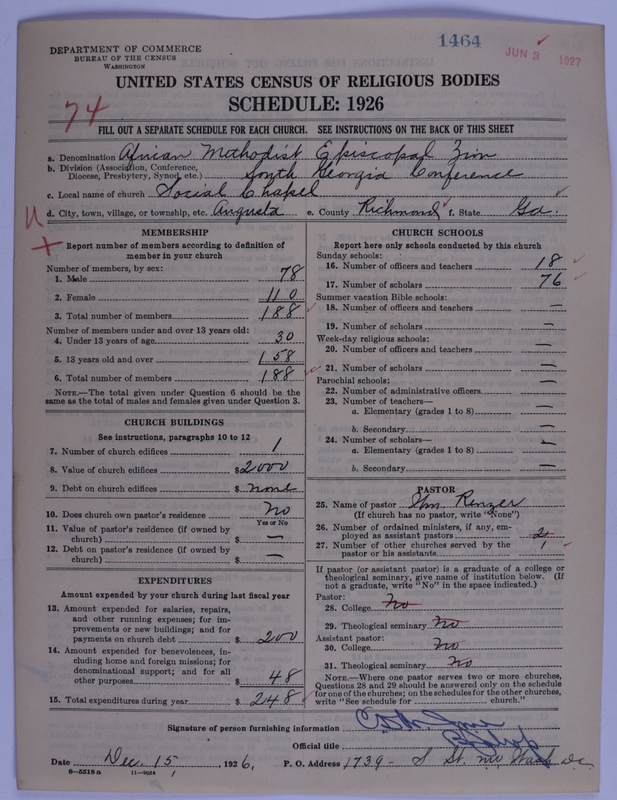 1464
JUN 3 1927
DEPARTMENT OF COMMERCE
BUREAU OF THE CENSUS
WASHINGTON
UNITED STATES CENSUS OF RELIGIOUS BODIES
SCHEDULE: 1926
74
FILL OUT A SEPARATE SCHEDULE FOR EACH CHURCH. SEE INSTRUCTIONS ON THE BACK OF THIS SHEET
a. Denomination African Methodist Episcopal Zion
b. Division (Association, Conference, Diocese, Presbytery, Synod, etc.) South Georgia Conference
c. Local name of church Social Chapel
d. City, town, village, or township, etc. Augusta e. County Richmond f. State Ga.
MEMBERSHIP
Report number of members according to definition of
member in your church
Number of members, by sex:
1. Male 78
2. Female 110
3. Total number of members 188
Number of members under and over 13 years old:
4. Under 13 years of age 30
5. 13 years old and over 158
6. Total number of members 188
NOTE.—The total given under Question 6 should be
same as the total of males and females given under Question 3.
CHURCH BUILDINGS
See instructions, paragraphs 10 to 12
7. Number of church edifices 1
8. Value of church edifices $2000
9. Debt on church edifices $ none
10. Does church own pastor's residence No
Yes or No
11. Value of pastor's residence (if owned by
church) $ —
12. Debt on pastor's residence (if owned by
church) $ —
EXPENDITURES
Amount expended by your church during last fiscal year
13. Amount expended for salaries, repairs,
and other running expenses; for im-
provements or new buildings; and for
payments on church debt $ 200
14. Amount expended for benevolences, in-
cluding home and foreign missions; for
denominational support; and for all
other purposes $ 48
15. Total expenditures during year $ 248
CHURCH SCHOOLS
Report here only schools conducted by this church
Sunday schools:
16. Number of officers and teachers 18
17. Number of scholars 76
Summer vacation Bible schools:
18. Number of officers and teachers —
19. Number of scholars —
Week-day religious schools:
20. Number of officers and teachers —
21. Number of scholars —
Parochial schools:
22. Number of administrative officers —
23. Number of teachers—
a. Elementary (grades 1 to 8) —
b. Secondary —
24. Number of scholars—
a. Elementary (grades 1 to 8) —
b. Secondary —
PASTOR
25. Name of pastor Wm. Renzer
(If church has no pastor, write "None")
26. Number of ordained ministers, if any, em-
ployed as assistant pastors 2
27. Number of other churches served by the
pastor or his assistants 1
If pastor (or assistant pastor) is a graduate of a college or
theological seminary, give name of institution below. (If
not a graduate, write "No" in the space indicated.)
Pastor:
28. College No
29. Theological seminary No
Assistant pastor:
30. College No
31. Theological seminary No
NOTE.—Where one pastor serves two or more churches,
Questions 28 and 29 should be answered only on the schedule
for one of the churches; on the schedules for the other churches,
write "See schedule for church."
Signature of person furnishing information
Official title Bishop
Date Dec. 15, 1926, P. O. Address 1739 - S St. NW Wash DC
8—5518a 11—9124